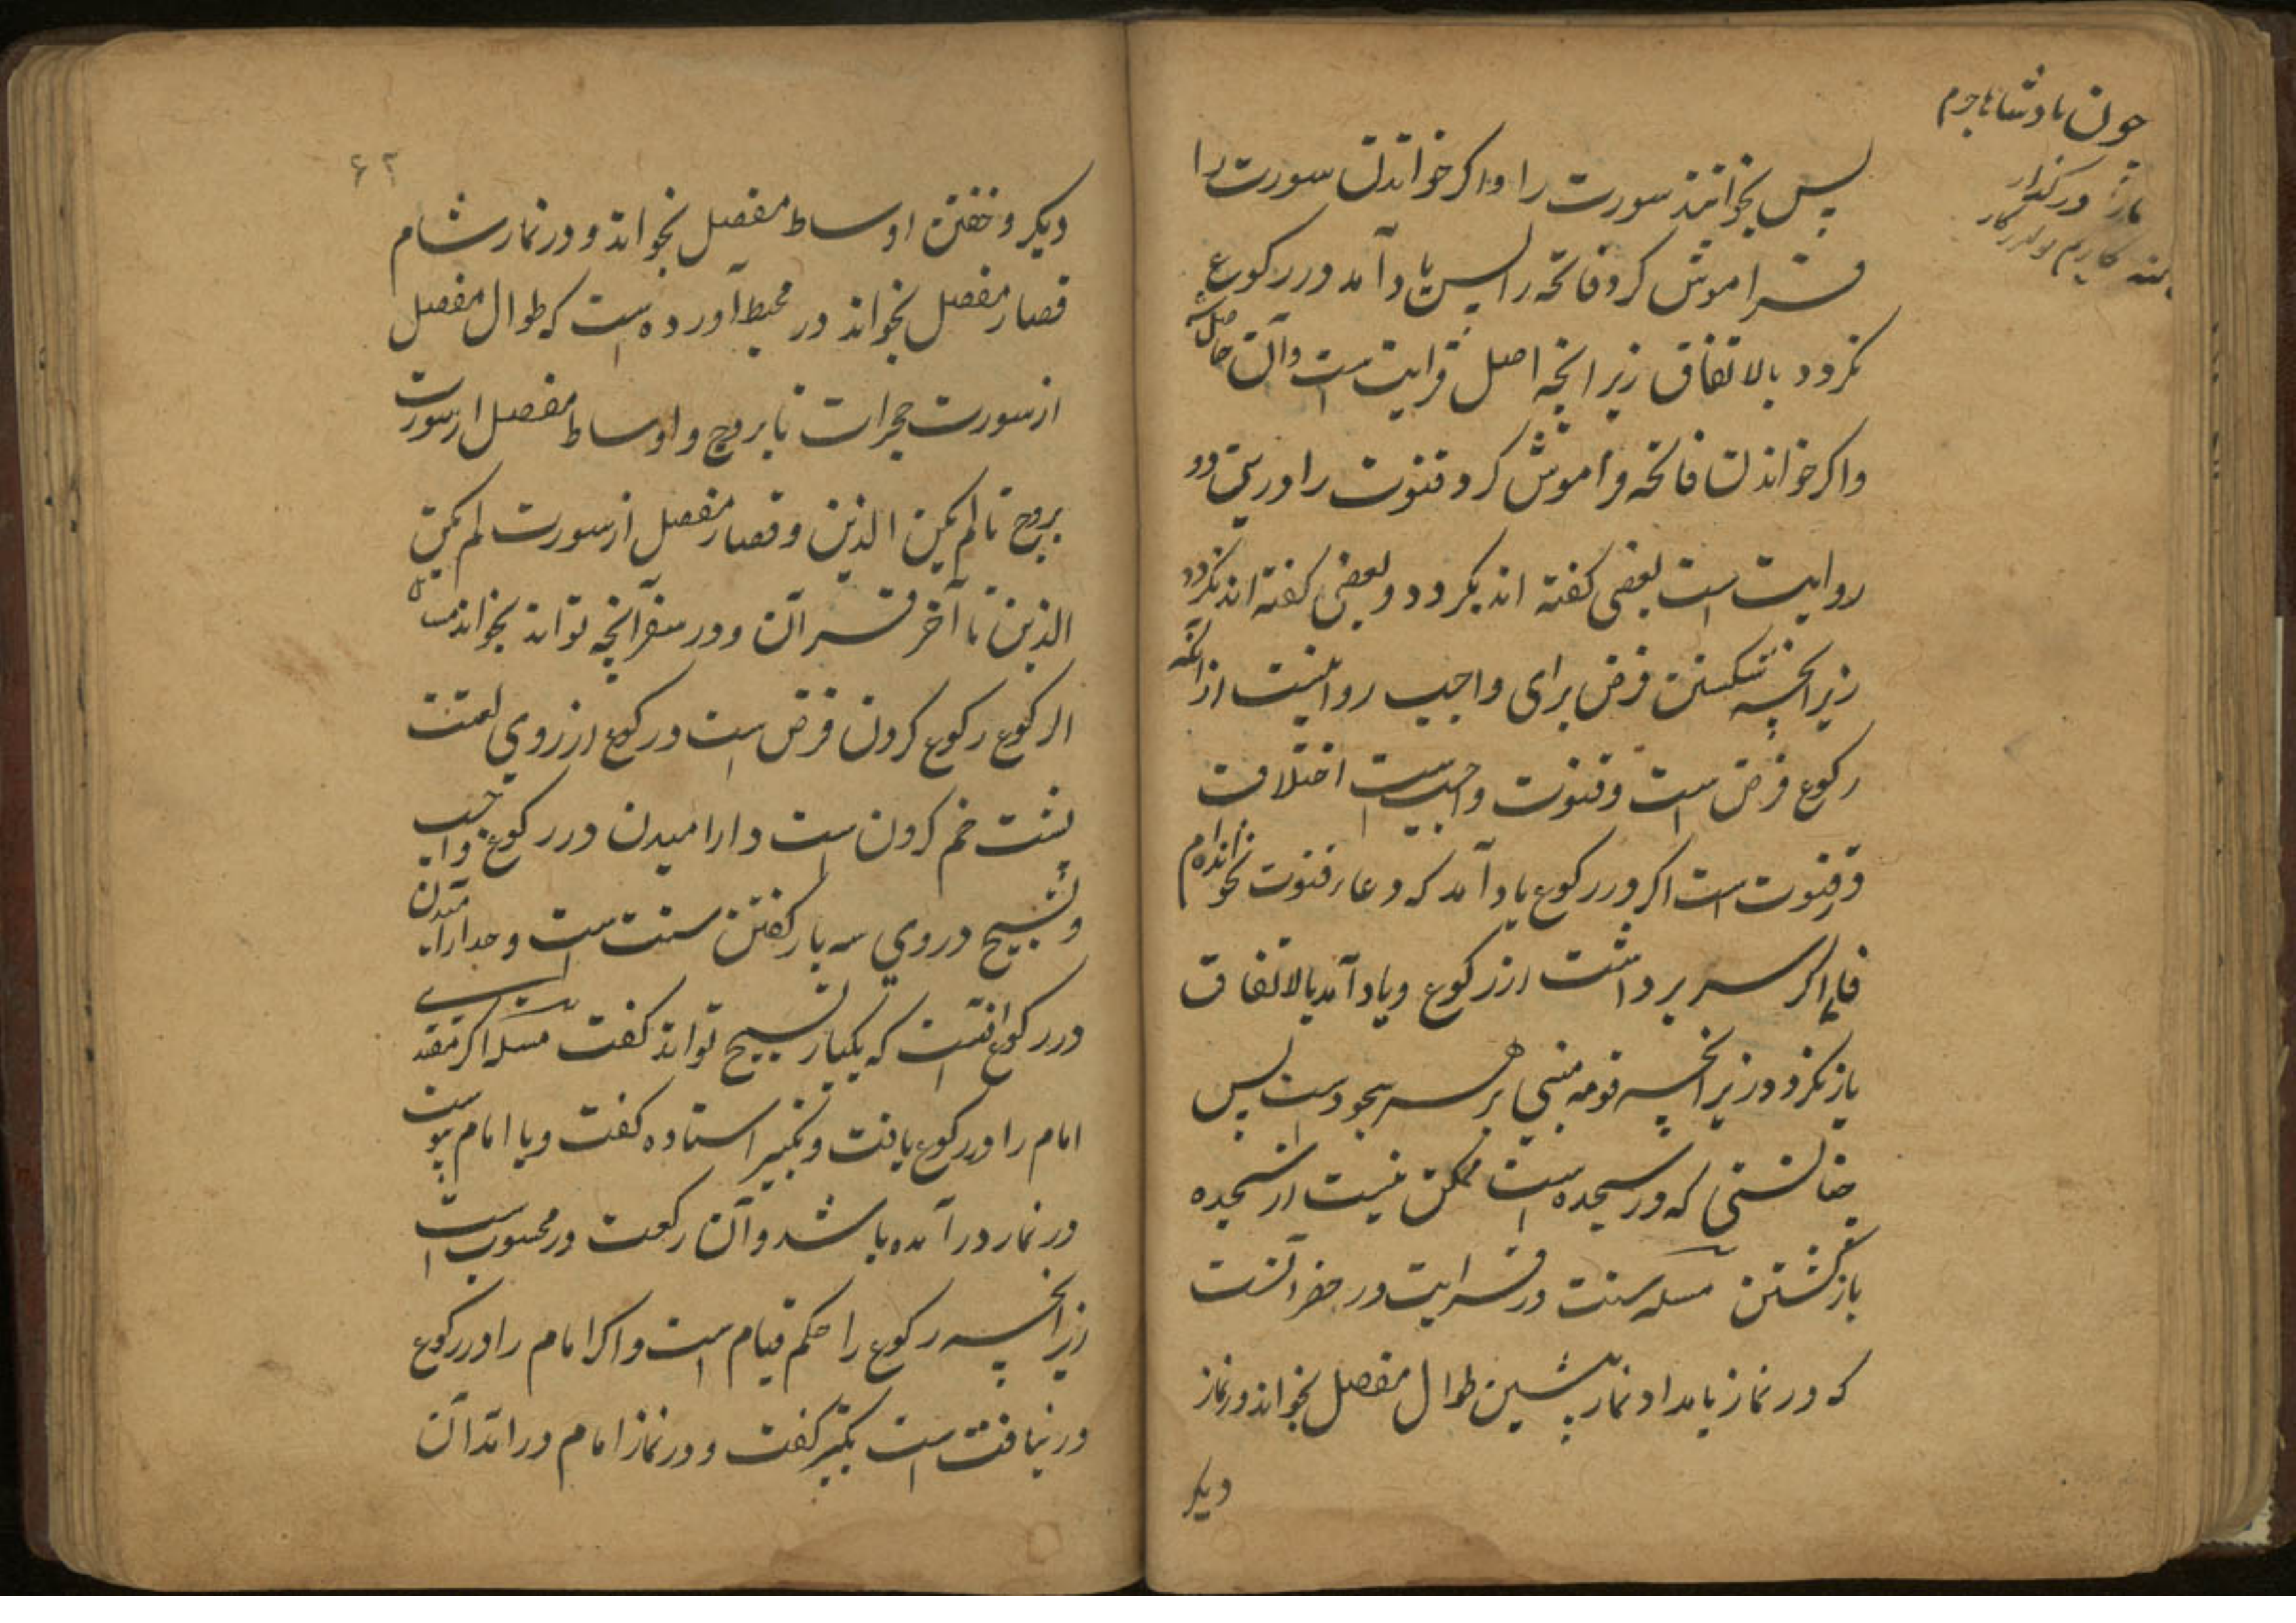 پس بخوانند سورت را و اگر خواندن سورت را
فراموش کرد فاتحه را پس یاد آمد در رکوع
نگردد بالاتفاق زیرانچه اصل قرایت است و آن حاصل
و اگر خواندن فاتحه فراموش کرد قنوت را درین دو
روایت است بعضی گفته اند بگردد و بعضی گفته اند نگردد
زیرانچه شکستن فرض برای واجب روا نیست از آنکه
رکوع فرض است و قنوت واجب است اختلاف
در قنوت است اگر در رکوع یاد آمد که دعاء قنوت نخوانده ام
فاما اگر سر برداشت از رکوع و یاد آمد بالاتفاق
باز نگردد زیرانچه قومه مبنی بر سر سجود است پس
چنانستی که در سجده است ممکن نیست از سجده
باز گشتن مسله سنت در قرایت در حضر آنست
که در نماز بامداد و نماز پیشین طوال مفصل بخواند در نماز
دیگر
۶۲
دیگر و خفتن اوساط مفصل بخواند و در نماز شام
قصار مفصل بخواند در محیط آورده است که طوال مفصل
از سورت حجرات تا بروج و اوساط مفصل از سورت
بروج تا لم یکن الذین و قصار مفصل از سورت لم یکن
الذین تا آخر قرآن و در سفر آنچه تواند بخواند
الرکوع رکوع کردن فرض است و رکوع از روی لغت
پشت خم کردن است و آرامیدن در رکوع واجب
و تسبیح در وی سه بار گفتن سنت است و حد آرامیدن
در رکوع آنست که یکبار تسبیح تواند گفت مسله اگر مقتدی
امام را در رکوع یافت و تکبیر استاده گفت و با امام پیوست
در نماز در آمده باشد و آن رکعت در محسوب است
زیرانچه رکوع را حکم قیام است و اگر امام را در رکوع
در نیافت است تکبیر گفت و در نماز امام در آمد آن